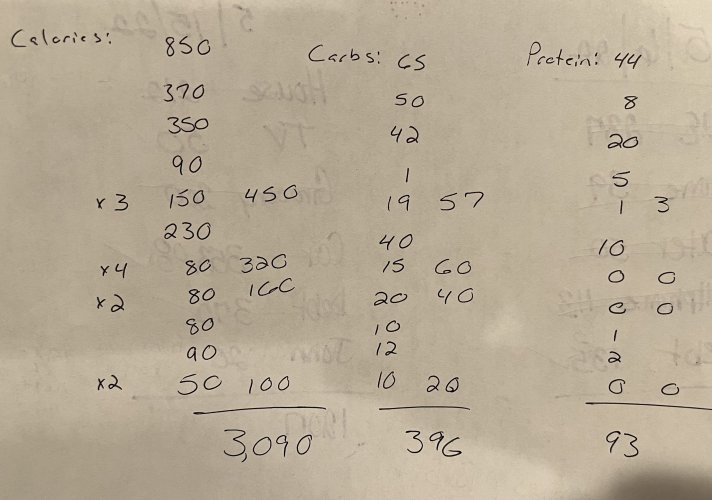 Calories: 850 Carbs: 65 Protein: 44
370 50 8
350 42 20
90 1 5
x3 150 450 19 57 1 3
230 40 10
x4 80 320 15 60 0 0
x2 80 160 20 40 0 0
80 10 1
90 12 2
x2 50 100 10 20 0 0
3,090 396 93